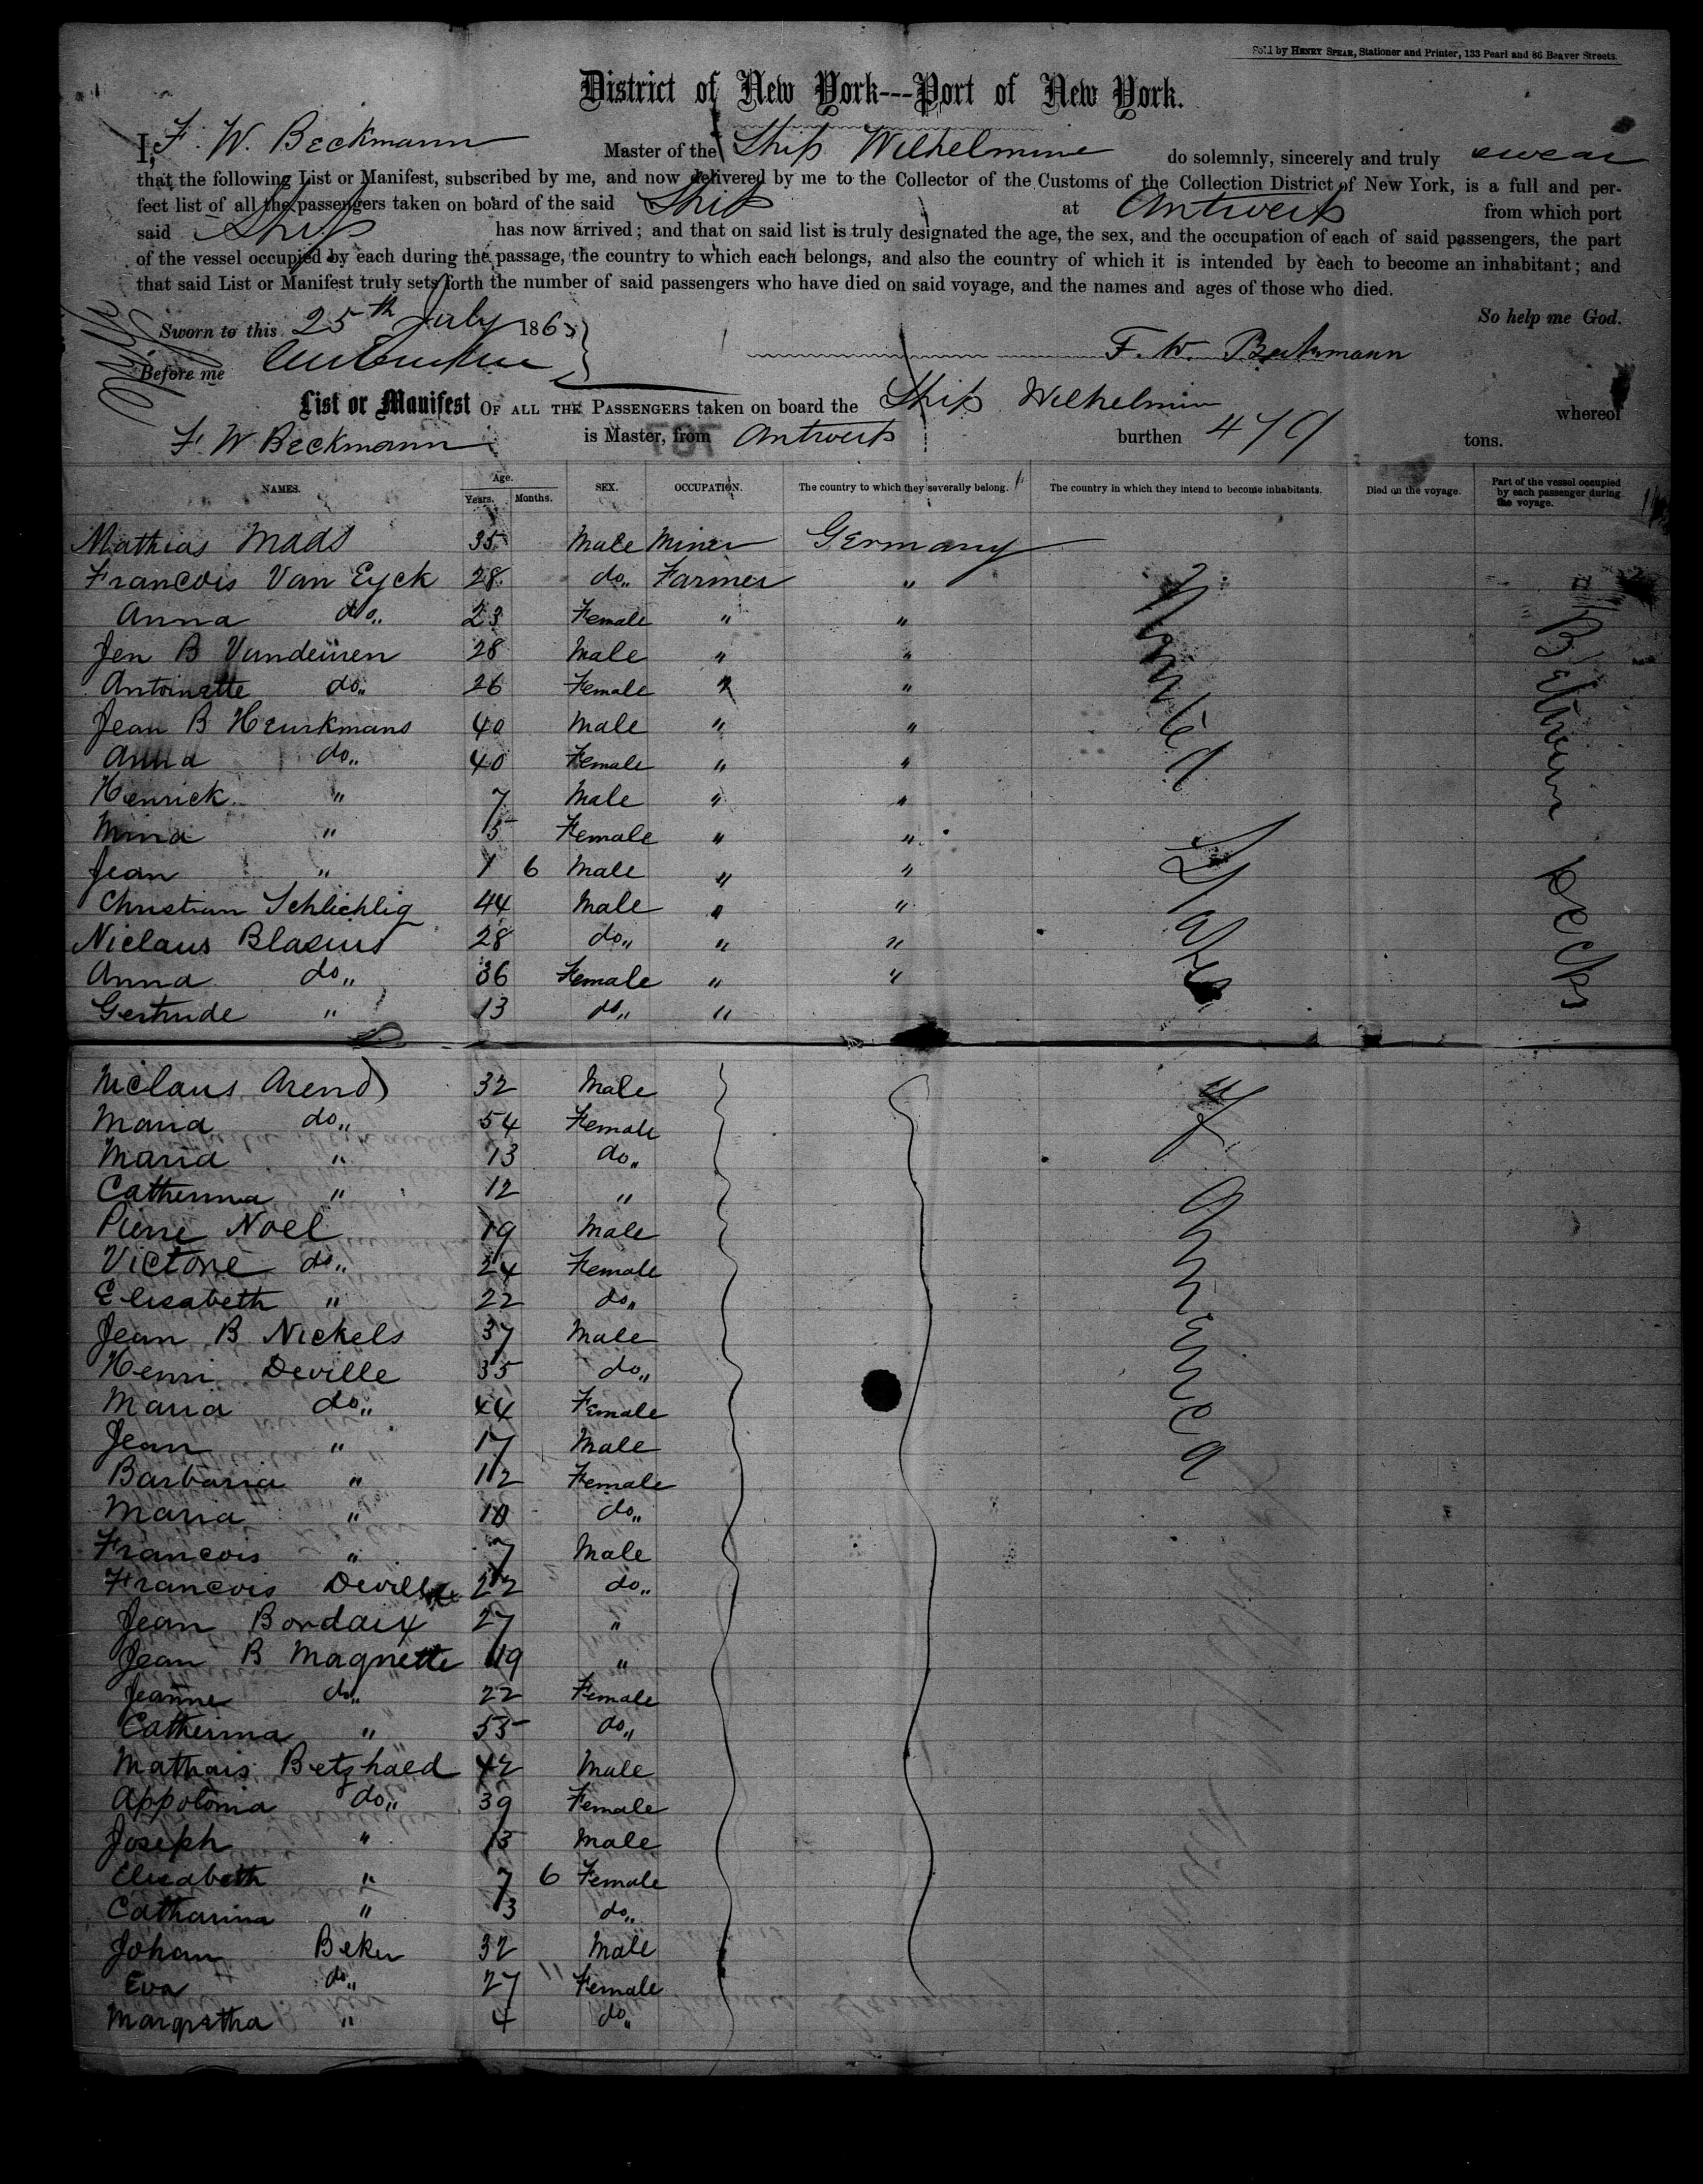 Sold by HENRY SPEAR, Stationer and Printer, 133 Pearl and 86 Beaver Streets.
District of New York---Port of New York.
I, F. W. Beckmann Master of the Ship Wilhelmine do solemnly, sincerely and truly swear
that the following List or Manifest, subscribed by me, and now delivered by me to the Collector of the Customs of the Collection District of New York, is a full and per-
fect list of all the passengers taken on board of the said Ship at Antwerp from which port
said Ship has now arrived; and that on said list is truly designated the age, the sex, and the occupation of each of said passengers, the part
of the vessel occupied by each during the passage, the country to which each belongs, and also the country of which it is intended by each to become an inhabitant; and
that said List or Manifest truly sets forth the number of said passengers who have died on said voyage, and the names and ages of those who died.
So help me God.
Sworn to this 25th July 1865
F. W. Beckmann
Before me
List or Manifest OF ALL THE PASSENGERS taken on board the Ship Wilhelmine whereof
F. W Beckmann is Master, from Antwerp burthen 479 tons.
NAMES. Age. Years. Months. SEX. OCCUPATION. The country to which they severally belong. The country in which they intend to become inhabitants. Died on the voyage. Part of the vessel occupied by each passenger during the voyage.
Mathias Mads 35 Male Miner Germany
Francois Van Eyck 28 do,, Farmer "
Anna do,, 23 Female " "
Jen B Vundeinen 28 Male " "
Antoinette do,, 26 Female " "
Jean B Heurkmans 40 Male " "
Anna do,, 40 Female " "
Henrick " 7 Male " "
Mina " 5 Female " "
Jean " 1 6 Male " "
Christian Schlichlig 44 Male " "
Niclaus Blasius 28 do,, " "
Anna do,, 36 Female " "
Gertrude " 13 do,, "
United States of America
Between Decks
Niclaus Arend 32 Male
Maria do,, 54 Female
Maria " 13 do,,
Catherina " 12 "
Pierre Noel 19 Male
Victorie do,, 24 Female
Elisabeth " 22 do,,
Jean B Nickels 37 Male
Henri Deville 35 do,,
Maria do,, 44 Female
Jean " 17 Male
Barbaria " 12 Female
Maria " 10 do,,
Francois " 7 Male
Francois Deville 22 do,,
Jean Bordaix 27 "
Jean B Magnette 19 "
Jeanne do,, 22 Female
Catherina " 55 do,,
Mathais Betzhaed 42 Male
Appolonia do,, 39 Female
Joseph " 13 Male
Elisabeth " 7 6 Female
Catharina " 3 do,,
Johan Beker 32 Male
Eva do,, 27 Female
Margretha " 4 do,,